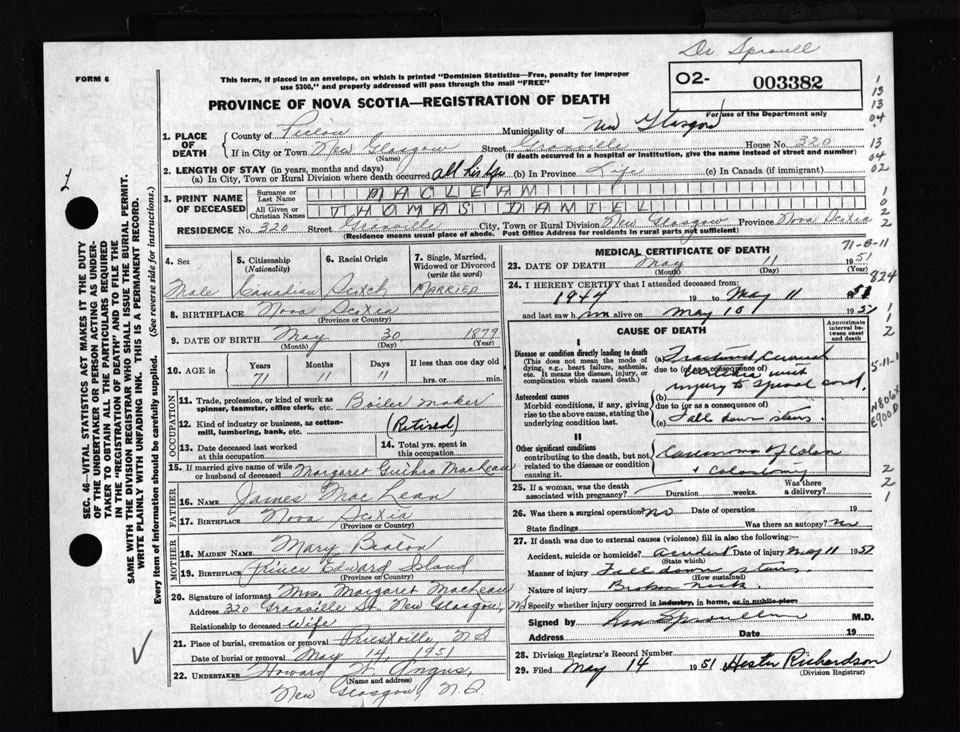 Dr Sproull
FORM 6
This form, if placed in an envelope, on which is printed "Dominion Statistics—Free, penalty for improper
use $300," and properly addressed will pass through the mail "FREE"
O2- 003382
PROVINCE OF NOVA SCOTIA—REGISTRATION OF DEATH
For use of the Department only
1. PLACE OF DEATH
County of Pictou Municipality of New Glasgow
If in City or Town New Glasgow Street Granville House No. 320
(Name) (If death occurred in a hospital or institution, give the name instead of street and number)
2. LENGTH OF STAY (in years, months and days)
(a) In City, Town or Rural Division where death occurred all his life (b) In Province Life (c) In Canada (if immigrant)
3. PRINT NAME OF DECEASED
Surname or Last Name MACLEAN
All Given or Christian Names THOMAS DANIEL
RESIDENCE No. 320 Street Granville City, Town or Rural Division New Glasgow Province Nova Scotia
(Residence means usual place of abode. Post Office Address for residents in rural parts not sufficient)
4. Sex
Male
5. Citizenship
(Nationality)
Canadian
6. Racial Origin
Scotch
7. Single, Married, Widowed or Divorced
(write the word)
MARRIED
8. BIRTHPLACE Nova Scotia
(Province or Country)
9. DATE OF BIRTH May 30 1879
(Month) (Day) (Year)
10. AGE in
Years Months Days If less than one day old
71 11 11 hrs. or min.
OCCUPATION
11. Trade, profession, or kind of work as
spinner, teamster, office clerk, etc. Boiler maker
12. Kind of industry or business, as cotton-
mill, lumbering, bank, etc. (Retired)
13. Date deceased last worked
at this occupation
14. Total yrs. spent in
this occupation
15. If married give name of wife
or husband of deceased Margaret MacLean
FATHER
16. NAME James MacLean
17. BIRTHPLACE Nova Scotia
(Province or Country)
MOTHER
18. MAIDEN NAME Mary Beaton
19. BIRTHPLACE Prince Edward Island
(Province or Country)
20. Signature of informant Mrs. Margaret MacLean
Address 320 Granville St. New Glasgow, NS
Relationship to deceased Wife
21. Place of burial, cremation or removal Priestville, NS
Date of burial or removal May 14, 1951
22. UNDERTAKER Howard W. Angus,
(Name and address)
New Glasgow, N.S.
MEDICAL CERTIFICATE OF DEATH
23. DATE OF DEATH May 11 1951
(Month) (Day) (Year)
24. I HEREBY CERTIFY that I attended deceased from:
1944 19 to May 11 51
and last saw him alive on May 10 1951
CAUSE OF DEATH
Approximate interval between onset and death
I
Disease or condition directly leading to death
(This does not mean the mode of
dying, e.g., heart failure, asthenia,
etc. It means the disease, injury, or
complication which caused death.)
(a) Fractured cervical
due to (or as a consequence of)
vertebra with
(b) injury to spinal cord
Antecedent causes
Morbid conditions, if any, giving
rise to the above cause, stating the
underlying condition last.
due to (or as a consequence of)
(c) Fall down stairs
II
Other significant conditions
contributing to the death, but not
related to the disease or condition
causing it.
Carcinoma of colon
+ colostomy
25. If a woman, was the death
associated with pregnancy? Duration weeks. Was there a delivery?
26. Was there a surgical operation? No Date of operation 19
State findings Was there an autopsy? No
27. If death was due to external causes (violence) fill in also the following:
Accident, suicide or homicide? accident Date of injury May 11 1951
(State which)
Manner of injury Fall down stairs
(How sustained)
Nature of injury Broken neck
Specify whether injury occurred in industry, in home, or in public place
Signed by Sproull M.D.
Address Date 19
28. Division Registrar's Record Number
29. Filed May 14 1951 Hester Richardson
(Division Registrar)
SEC. 46—VITAL STATISTICS ACT MAKES IT THE DUTY
OF THE UNDERTAKER OR PERSON ACTING AS UNDER-
TAKER TO OBTAIN ALL THE PARTICULARS REQUIRED
IN THE "REGISTRATION OF DEATH" AND TO FILE THE
SAME WITH THE DIVISION REGISTRAR WHO SHALL ISSUE THE BURIAL PERMIT.
WRITE PLAINLY WITH UNFADING INK. THIS IS A PERMANENT RECORD.
Every item of information should be carefully supplied. (See reverse side for instructions.)
1
13
13
04
13
04
02
1
0
2
2
71-8-11
824
1
2
5-11-1
N806X
E900.0
2
2
1